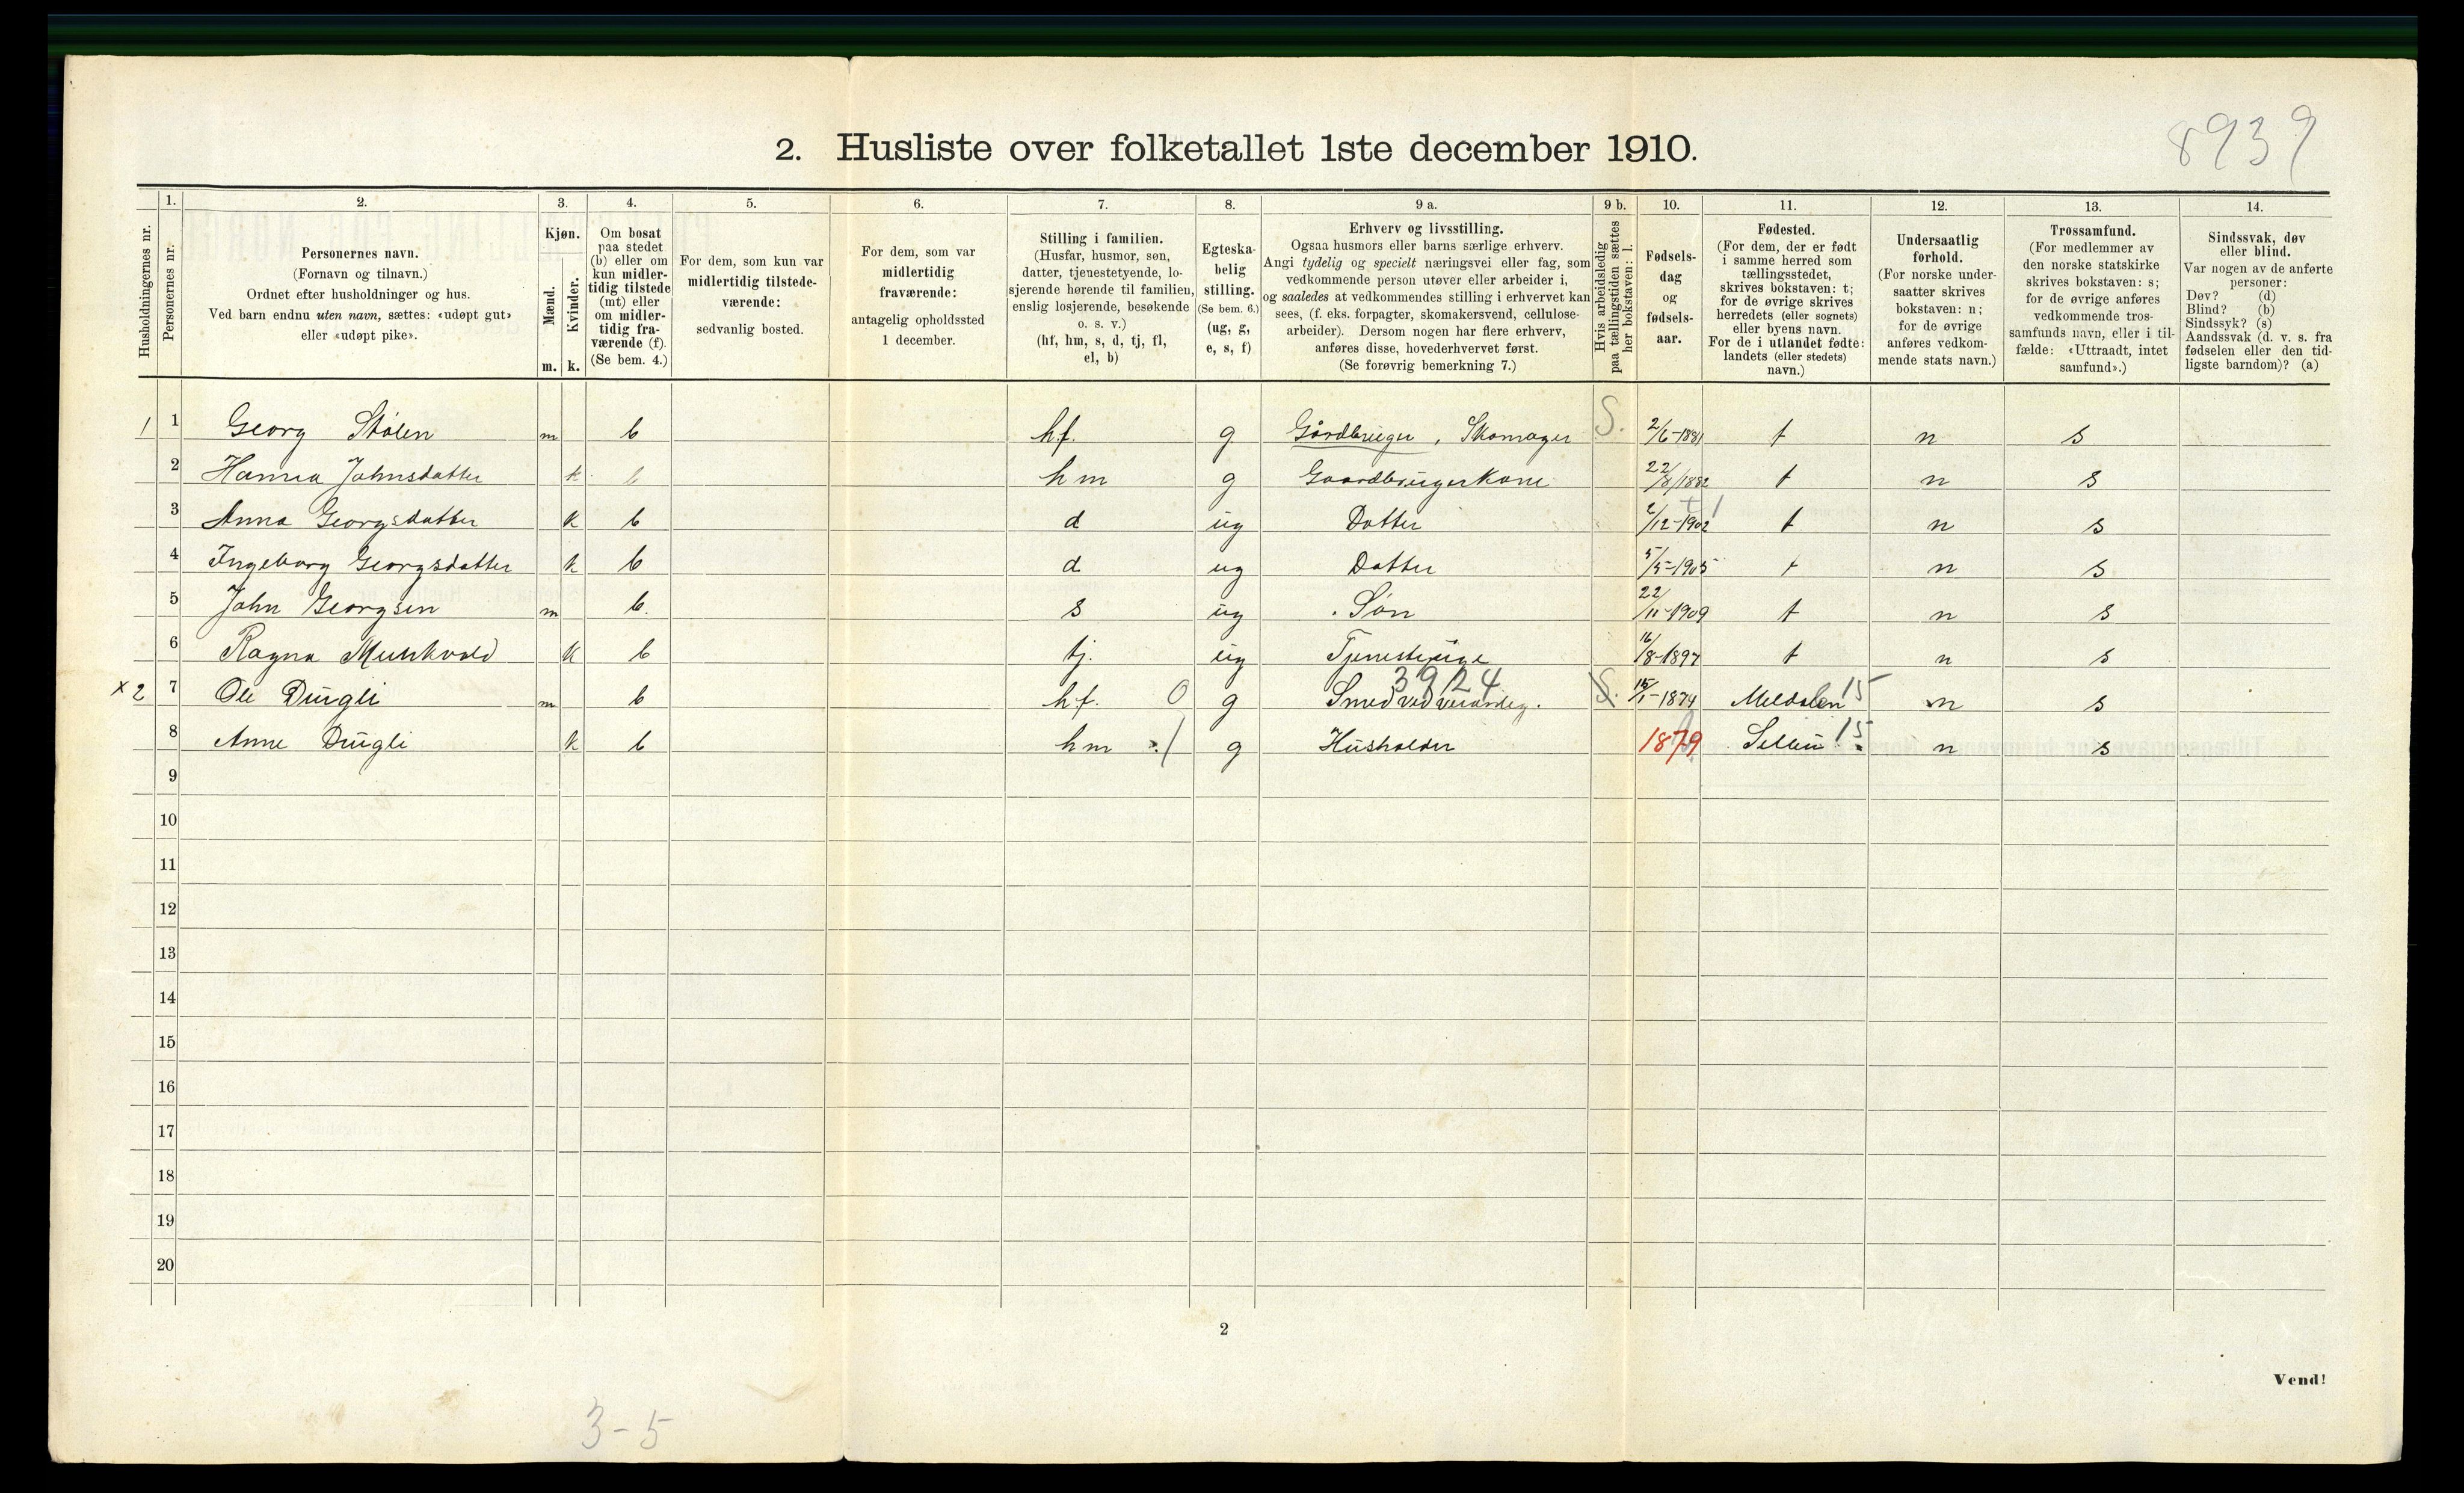 8939
2. Husliste over folketallet 1ste december 1910.
Husholdningernes nr.
1. Personernes nr.
2. Personernes navn. (Fornavn og tilnavn.) Ordnet efter husholdninger og hus. Ved barn endnu uten navn, sættes: «udøpt gut» eller «udøpt pike».
3. Kjøn. Mænd. m. Kvinder. k.
4. Om bosat paa stedet (b) eller om kun midlertidig tilstede (mt) eller om midlertidig fraværende (f). (Se bem. 4.)
5. For dem, som kun var midlertidig tilstedeværende: sedvanlig bosted.
6. For dem, som var midlertidig fraværende: antagelig opholdssted 1 december.
7. Stilling i familien. (Husfar, husmor, søn, datter, tjenestetyende, losjerende hørende til familien, enslig losjerende, besøkende o. s. v.) (hf, hm, s, d, tj, fl, el, b)
8. Egteskabelig stilling. (Se bem. 6.) (ug, g, e, s, f)
9 a. Erhverv og livsstilling. Ogsaa husmors eller barns særlige erhverv. Angi tydelig og specielt næringsvei eller fag, som vedkommende person utøver eller arbeider i, og saaledes at vedkommendes stilling i erhvervet kan sees, (f. eks. forpagter, skomakersvend, cellulosearbeider). Dersom nogen har flere erhverv, anføres disse, hovederhvervet først. (Se forøvrig bemerkning 7.)
9 b. Hvis arbeidsledig paa tællingstiden sættes her bokstaven: l.
10. Fødselsdag og fødselsaar.
11. Fødested. (For dem, der er født i samme herred som tællingsstedet, skrives bokstaven: t; for de øvrige skrives herredets (eller sognets) eller byens navn. For de i utlandet fødte: landets (eller stedets) navn.)
12. Undersaatlig forhold. (For norske undersaatter skrives bokstaven: n; for de øvrige anføres vedkommende stats navn.)
13. Trossamfund. (For medlemmer av den norske statskirke skrives bokstaven: s; for de øvrige anføres vedkommende trossamfunds navn, eller i tilfælde: «Uttraadt, intet samfund».)
14. Sindssvak, døv eller blind. Var nogen av de anførte personer: Døv? (d) Blind? (b) Sindssyk? (s) Aandssvak (d. v. s. fra fødselen eller den tidligste barndom)? (a)
1 1 Georg Stølen m b hf. g Gårdbruger, Skomager S. 2/6-1881 t n s
2 Hanna Johnsdatter k b hm g Gaardbrugerkone 22/8/1882 t n s
3 Anna Georgsdatter k b d ug Datter 2/12-1902 t n s
4 Ingeborg Georgsdatter k b d ug Datter 5/5-1905 t n s
5 John Georgsen m b. s ug Søn 22/11-1909 t n s
6 Ragna Munkvold k b tj. ug Tjenestepige 16/8-1897 t n s
3924
x 2 7 Ole Dragli m b hf. 0 g Smed ved S. 15/1-1874 Meldalen 15 n s
8 Anne Dragli k b hm 1 g Husholder 1879 15 n s
9
10
11
12
13
14
15
16
17
18
19
20
2
Vend!
3-5